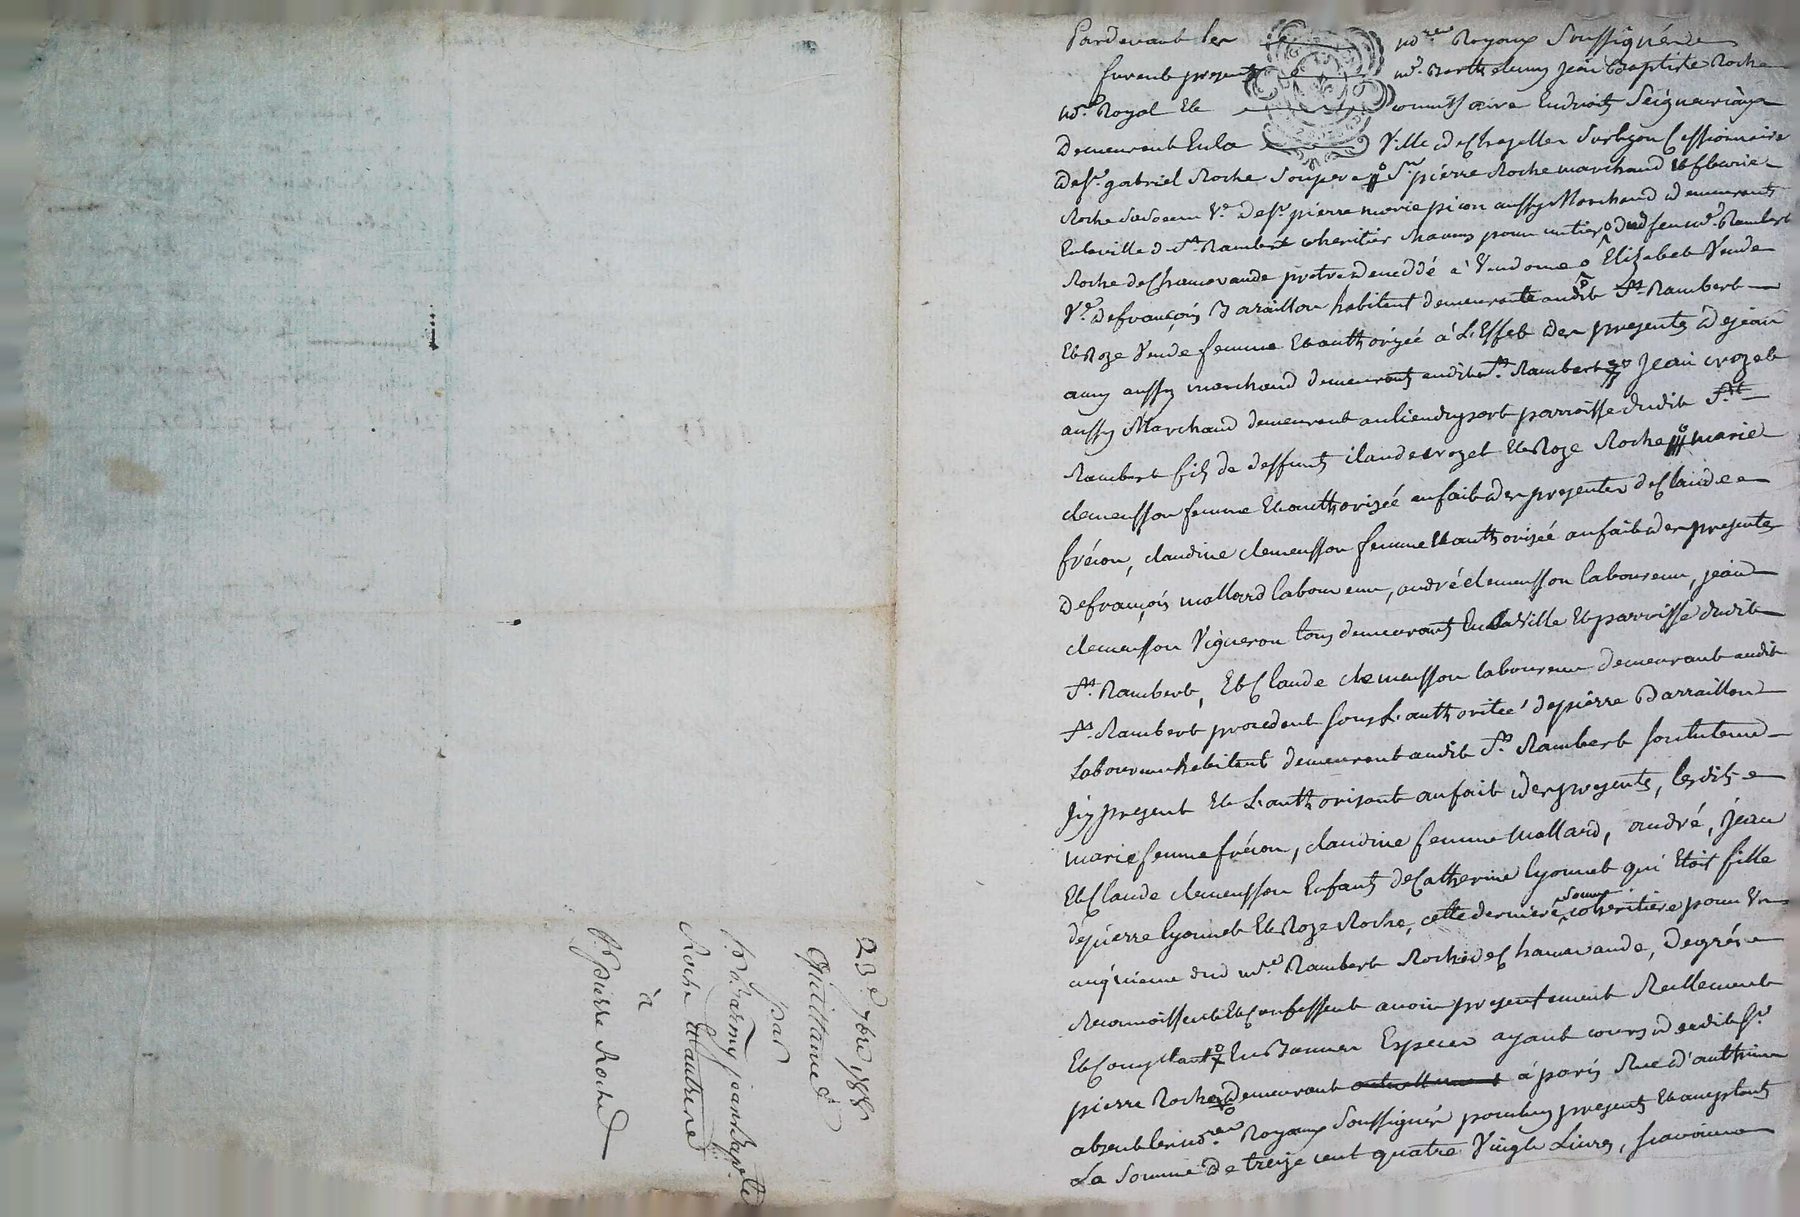 Pardevant les no.res Royaux Soussignés
furent presents me. Barthelemy jean Baptiste Roche
no.re Royal et commissaire endroits Seigneuriaux
demeurant en la Ville de Chazelles Sur Lyon Cessionnaire
de Sr. gabriel Roche Son pere Sr. pierre Roche marchand et fleurie
Roche Sa Soeur Ve. de Sr. pierre marie picon aussy Marchand demeurants
en la ville de St. Rambert heritier chacun pour un tier dud feu me. Rambert
Roche de Chamarande pretre decedé à Vendome Elizabet Vende
Ve. de françois Baraillon habitant demeurante audit St. Rambert
Et Roze Vende femme Et authorizée à L'Effet des presentes de jean
amy aussy marchand demeurants audit St. Rambert Jean crozet
aussy Marchand demeurant au lieu du port parroisse dudit St
Rambert fils de deffunts claude crozet Et Roze Roche marie
clemensson femme Et authorizée au fait des presentes de Claude
fréron, claudine clemensson femme Et authorizée au fait des presentes
de françois mallard laboureur, andré clemensson laboureur, jean
clemensson Vigneron tous demeurants En la Ville Et parroisse dudit
St. Rambert, Et Claude clemensson laboureur demeurant audit
St. Rambert procedant Sous L'authorité de pierre Barraillon
Laboureur habitant demeurant audit St. Rambert
present Et L'authorisant au fait des presentes, lesdits
marie femme fréron, claudine femme mallard, andré, jean
Et Claude clemensson Enfants de Catherine lyonnet qui Etoit fille
de pierre lyonnet Et Roze Roche, cette derniere Soeur coheritiere pour Un
cinquieme dud me. Rambert Roche de Chamarande, De gré
Reconnoissent Et Confessent avoir presentement Reellement
Et Comptant En Bonnes Especes ayant cours dudit Sr.
pierre Roche demeurant à paris Rue d'
absent les no.res Royaux Soussignés pour luy presents Et acceptants
La Somme de treize cent quatre Vingt Livres, Scavoir
23e. 7bre 1788
Quittance
par
Barmy jean Baptiste
Roche & autres
à
Sr. pierre Roche